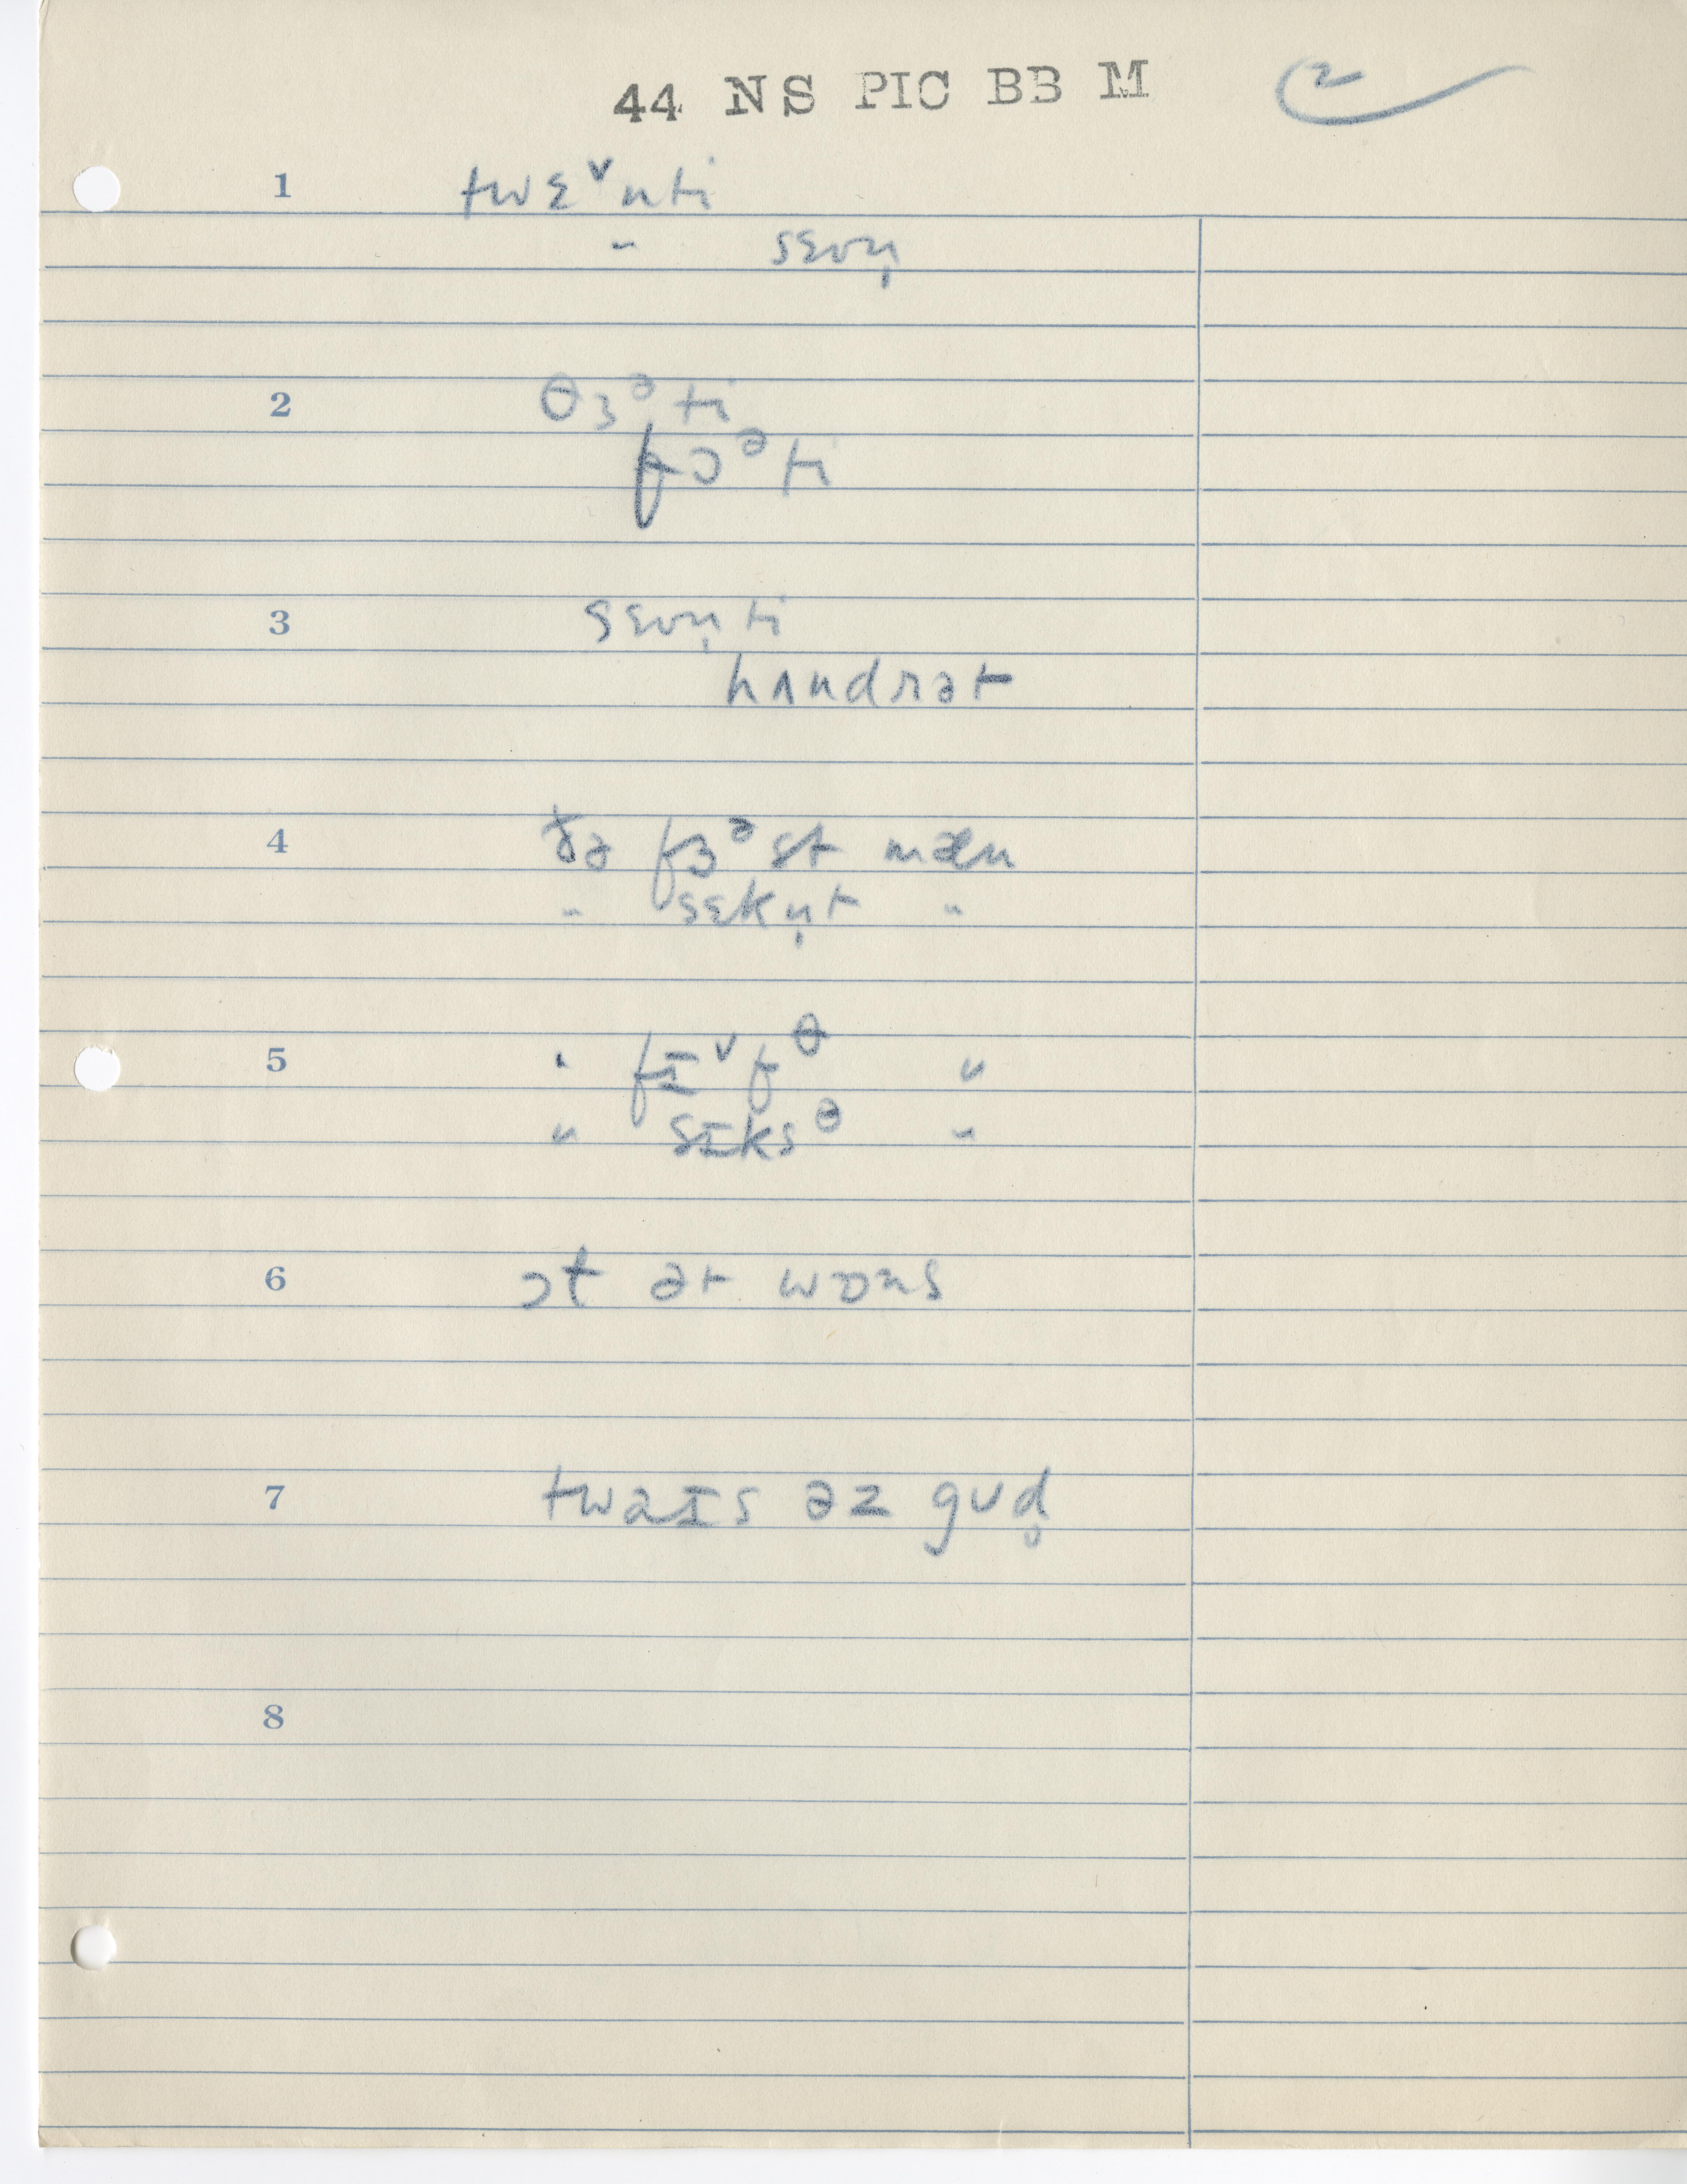 44 NS PIC BB M 2
1 twɛ˅nti
" sɛvn̩
2 θɜᵊti
fɔᵊti
3 sɛvn̩ti
hʌndrət
4 ðə fɜᵊst mæn
" sɛkn̩t "
5 " fɪ˅fᶿ "
" sɪksᶿ "
6 ɔt ət wɒns
7 twaɪs əz gʊd̥
8